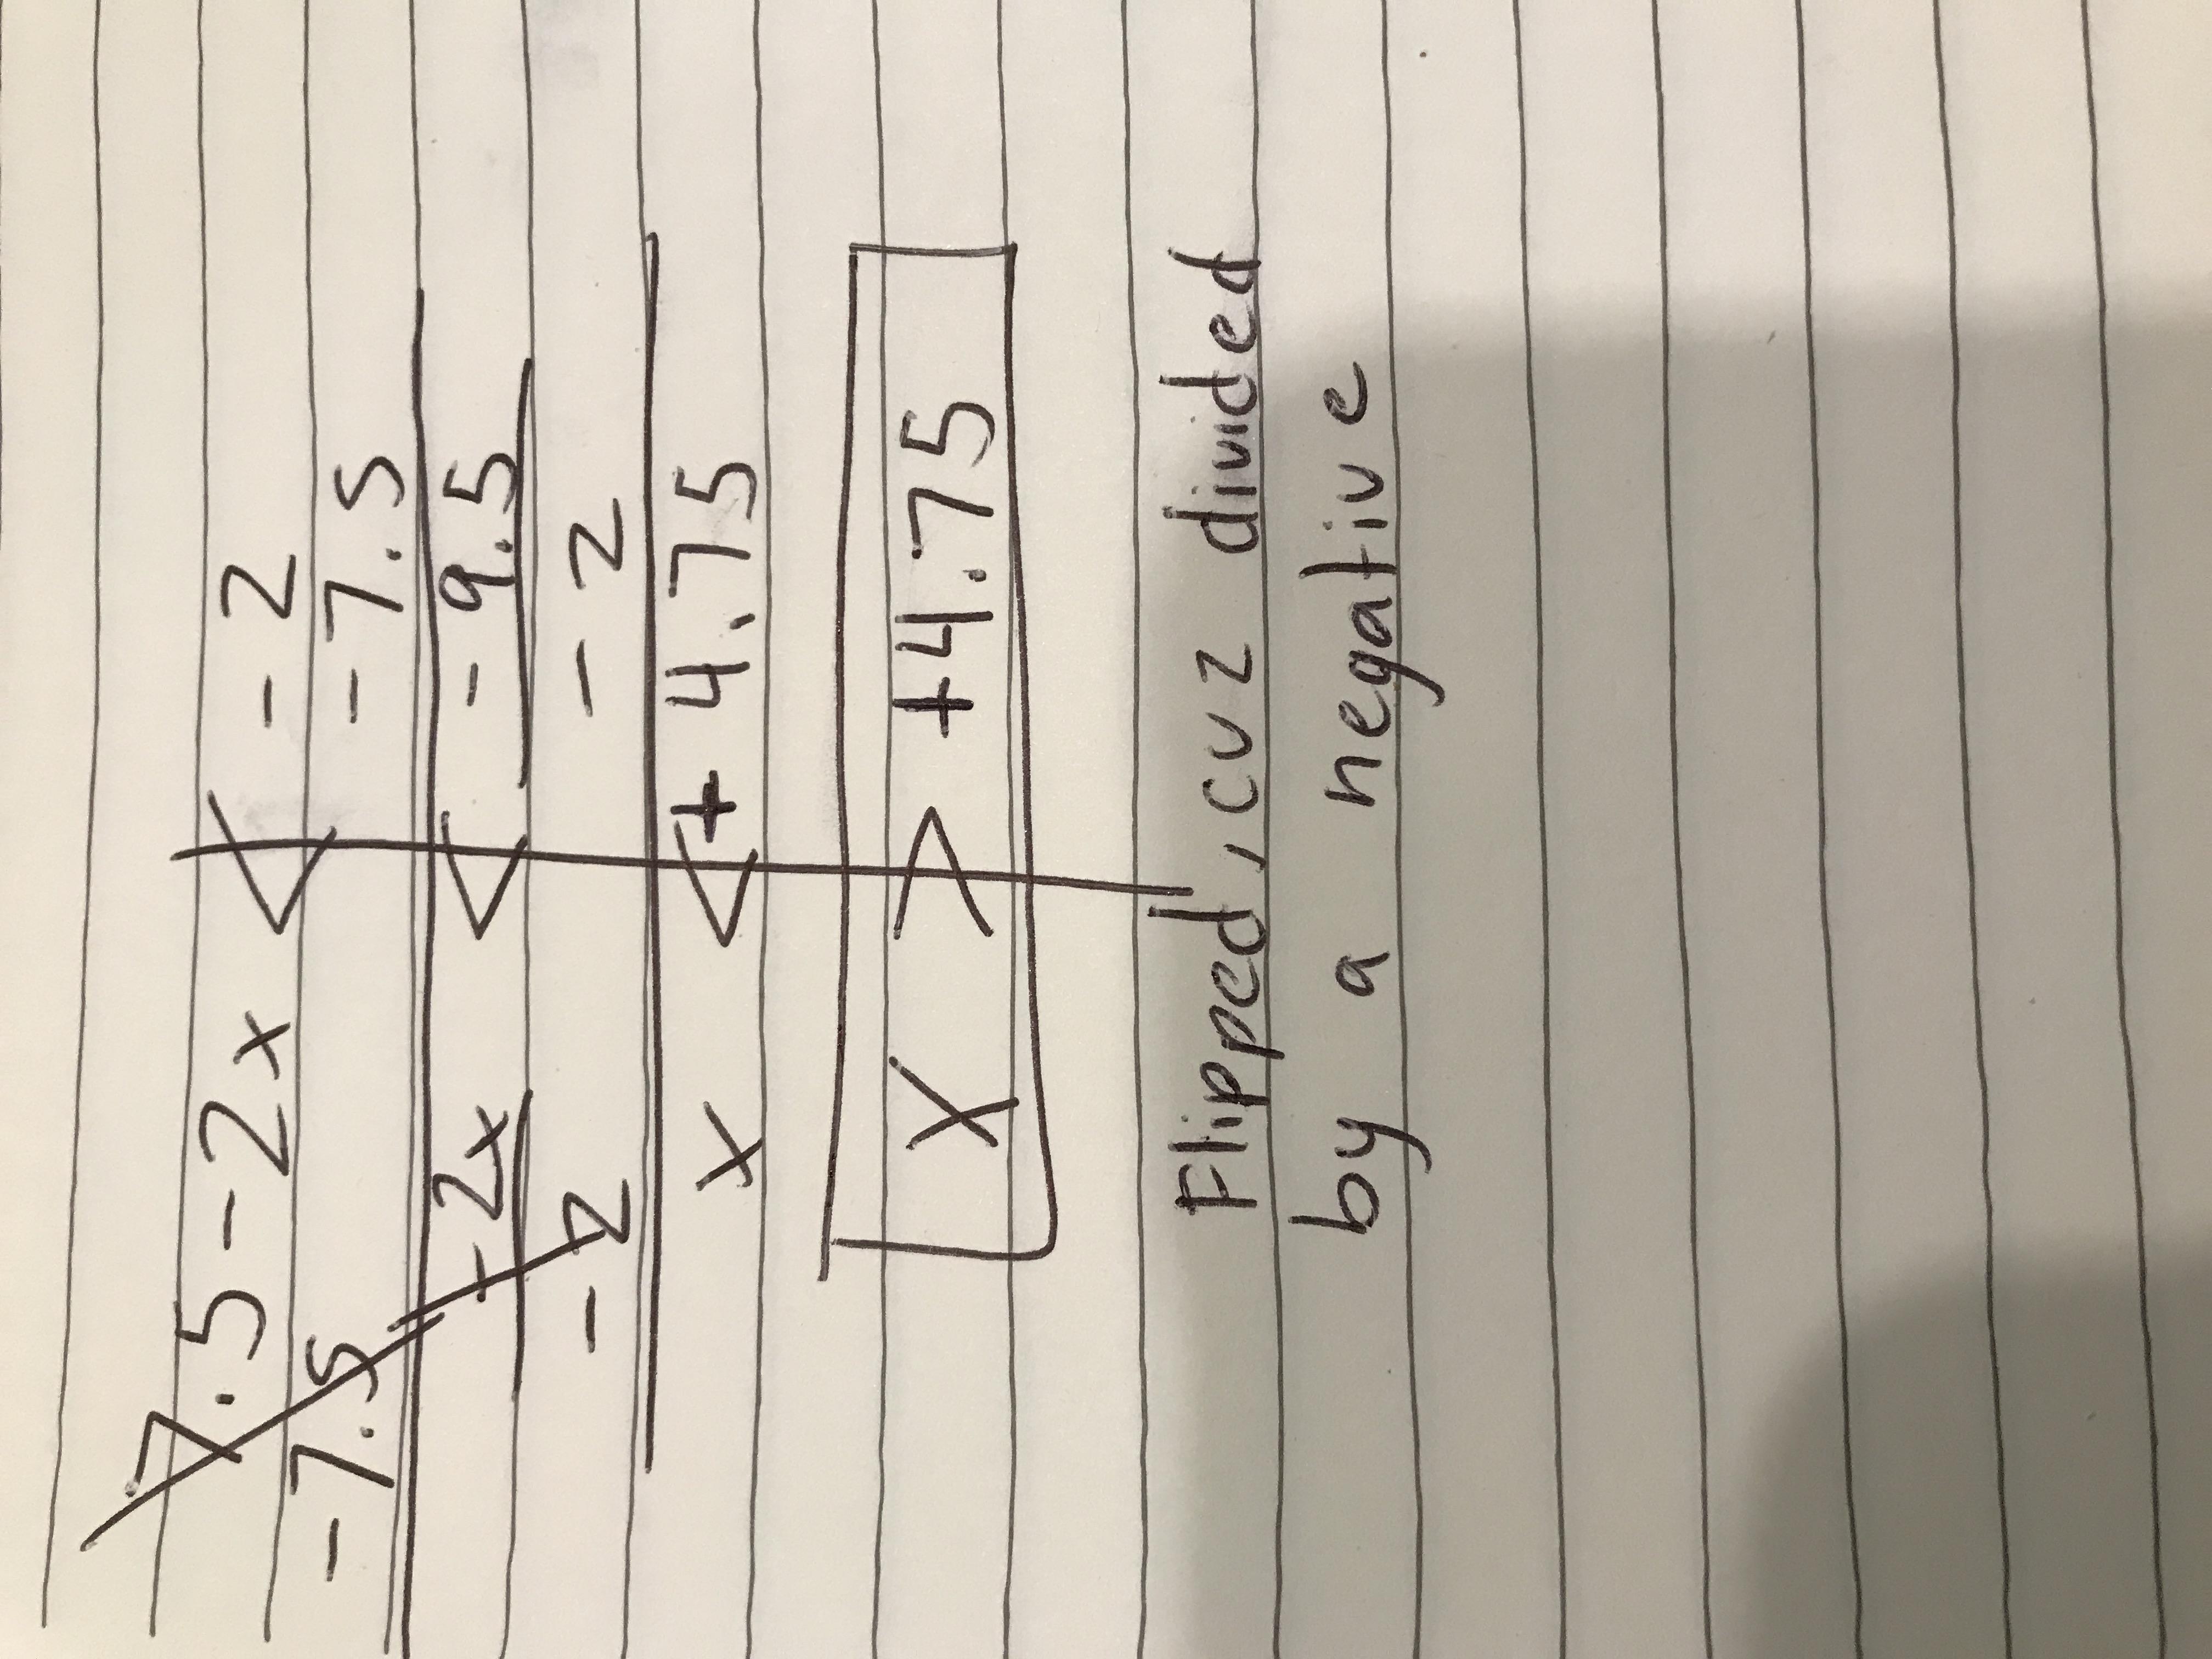 7.5 - 2x < -2
-7.5 -7.5
-2x < -9.5
-2 -2
x < +4.75
x > +4.75
Flipped, cuz divided
by a negative